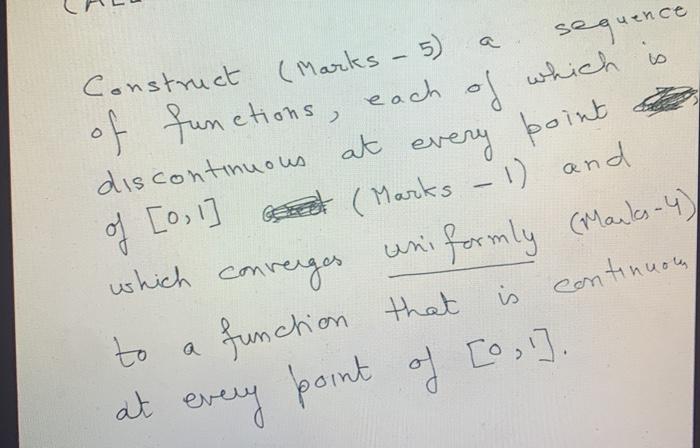 Construct (Marks - 5) a sequence
of functions, each of which is
discontinuous at every point
of [0,1] (Marks - 1) and
which converges uniformly (Marks-4)
to a function that is continuous
at every point of [0,1].